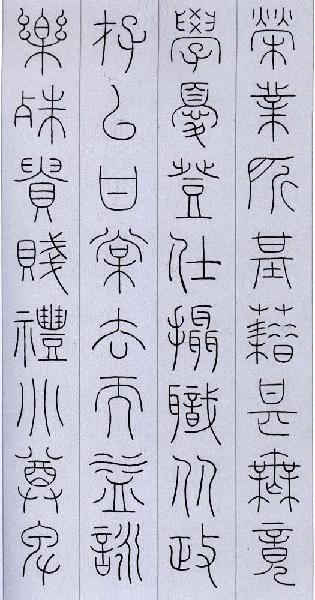 榮業所基藉甚無竟
學優登仕攝職從政
存以甘棠去而益詠
樂殊貴賤禮別尊卑